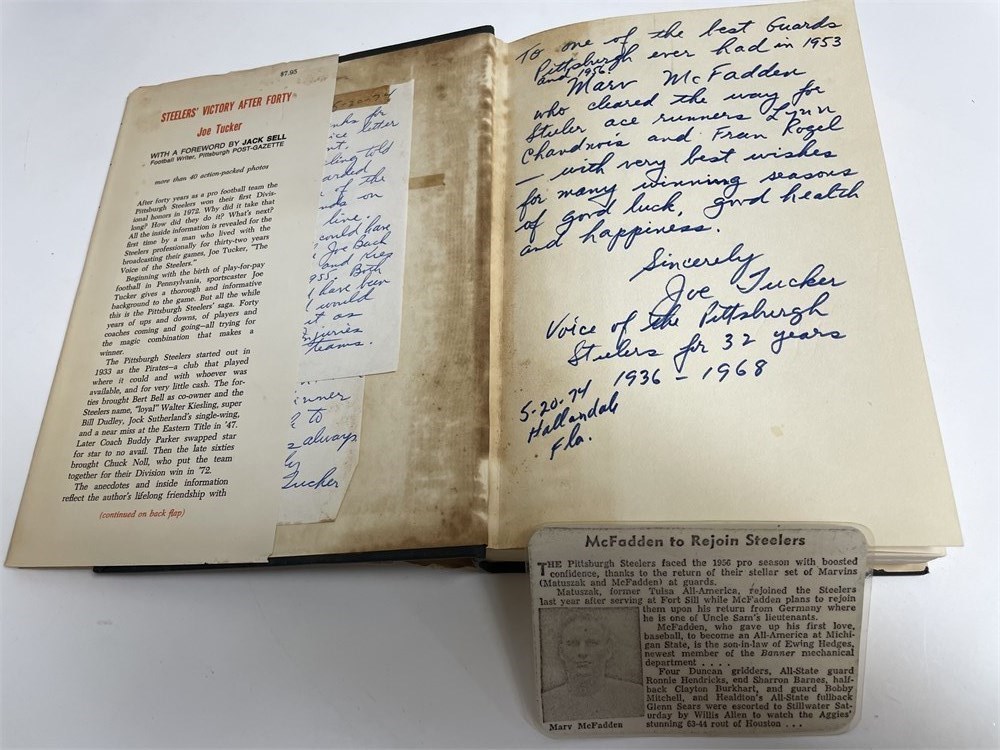 $7.95
STEELERS' VICTORY AFTER FORTY
Joe Tucker
WITH A FOREWORD BY JACK SELL
Football Writer, Pittsburgh POST-GAZETTE
more than 40 action-packed photos
After forty years as a pro football team the
Pittsburgh Steelers won their first Divis-
ional honors in 1972. Why did it take that
long? How did they do it? What's next?
All the inside information is revealed for the
first time by a man who lived with the
Steelers professionally for thirty-two years
broadcasting their games, Joe Tucker, "The
Voice of the Steelers."
Beginning with the birth of play-for-pay
football in Pennsylvania, sportscaster Joe
Tucker gives a thorough and informative
background to the game. But all the while
this is the Pittsburgh Steelers' saga. Forty
years of ups and downs, of players and
coaches coming and going—all trying for
the magic combination that makes a
winner.
The Pittsburgh Steelers started out in
1933 as the Pirates—a club that played
where it could and with whoever was
available, and for very little cash. The for-
ties brought Bert Bell as co-owner and the
Steelers name, "loyal" Walter Kiesling, super
Bill Dudley, Jock Sutherland's single-wing,
and a near miss at the Eastern Title in '47.
Later Coach Buddy Parker swapped star
for star to no avail. Then the late sixties
brought Chuck Noll, who put the team
together for their Division win in '72.
The anecdotes and inside information
reflect the author's lifelong friendship with
(continued on back flap)
5-20-74
for
letter
told
of the
on
line
could have
Joe Bach
and
Both
have been
would
it as
injuries
teams.
to
always
Tucker
To one of the best Guards
Pittsburgh ever had in 1953
and 1956.
Marv McFadden
who cleared the way for
Steeler ace runners Lynn
Chandnois and Fran Rogel
— with very best wishes
for many winning seasons
of good luck, good health
and happiness.
Sincerely
Joe Tucker
Voice of the Pittsburgh
Steelers for 32 years
1936 - 1968
5-20-74
Hallandale
Fla.
McFadden to Rejoin Steelers
THE Pittsburgh Steelers faced the 1956 pro season with boosted
confidence, thanks to the return of their stellar set of Marvins
(Matuszak and McFadden) at guards.
Matuszak, former Tulsa All-America, rejoined the Steelers
last year after serving at Fort Sill while McFadden plans to rejoin
them upon his return from Germany where
he is one of Uncle Sam's lieutenants.
McFadden, who gave up his first love,
baseball, to become an All-America at Michi-
gan State, is the son-in-law of Ewing Hedges,
newest member of the Banner mechanical
department . . . .
Four Duncan gridders, All-State guard
Ronnie Hendricks, end Sharron Barnes, half-
back Clayton Burkhart, and guard Bobby
Mitchell, and Healdton's All-State fullback
Glenn Sears were escorted to Stillwater Sat-
urday by Willis Allen to watch the Aggies'
stunning 63-44 rout of Houston . . .
Marv McFadden